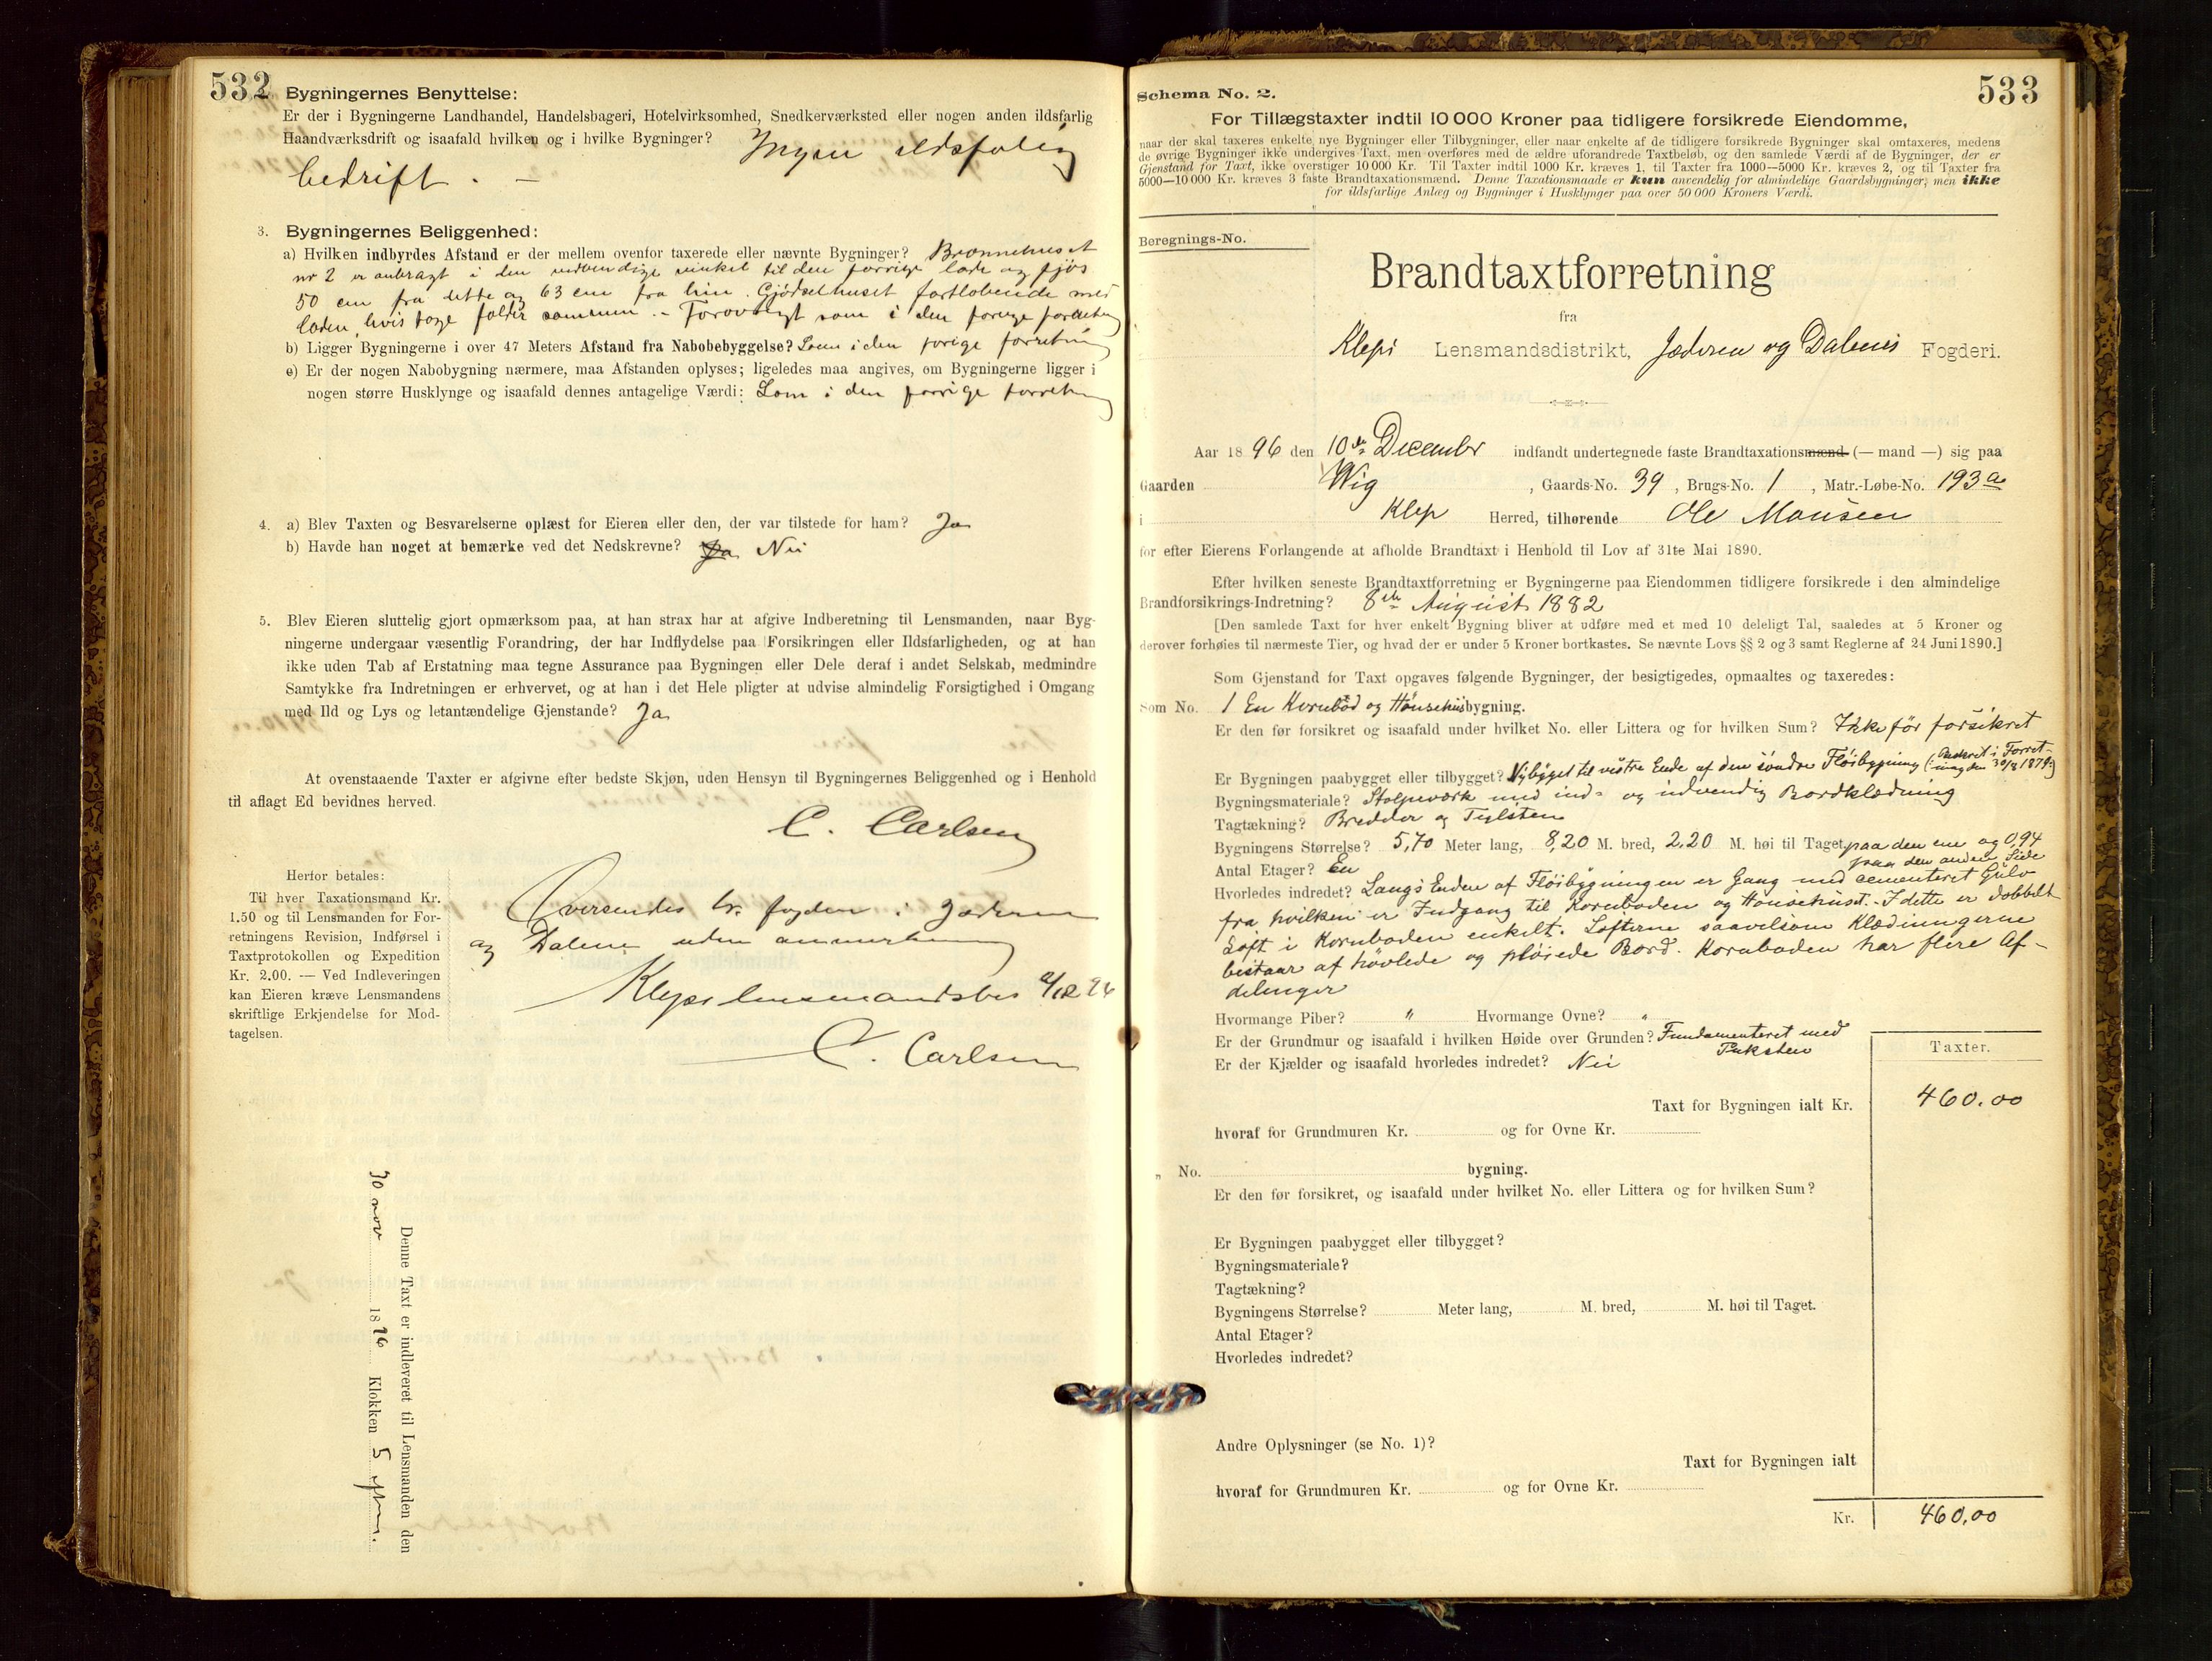 532
Bygningernes Benyttelse:
Er der i Bygningerne Landhandel, Handelsbageri, Hotelvirksomhed, Snedkerværksted eller nogen anden ildsfarlig
Haandværksdrift og isaafald hvilken og i hvilke Bygninger? Ingen ildsfarlig
bedrift. —
3. Bygningernes Beliggenhed:
a) Hvilken indbyrdes Afstand er der mellem ovenfor taxerede eller nævnte Bygninger? Brønnehuset
nr 2 er anbragt i den udvendige vinkel til den forrige lade og fjøs
50 cm fra dette og 63 cm fra hin. Gjødselhuset fortløbende med
laden, hvis tage falder sammen. – Forøvrigt som i den forrige forretning
b) Ligger Bygningerne i over 47 Meters Afstand fra Nabobebyggelse? Som i den forrige forretning
c) Er der nogen Nabobygning nærmere, maa Afstanden oplyses; ligeledes maa angives, om Bygningerne ligger i
nogen større Husklynge og isaafald dennes antagelige Værdi: Som i den forrige forretning
4. a) Blev Taxten og Besvarelserne oplæst for Eieren eller den, der var tilstede for ham? Ja
b) Havde han noget at bemærke ved det Nedskrevne? Ja Nei
5. Blev Eieren sluttelig gjort opmærksom paa, at han strax har at afgive Indberetning til Lensmanden, naar Byg-
ningerne undergaar væsentlig Forandring, der har Indflydelse paa Forsikringen eller Ildsfarligheden, og at han
ikke uden Tab af Erstatning maa tegne Assurance paa Bygningen eller Dele deraf i andet Selskab, medmindre
Samtykke fra Indretningen er erhvervet, og at han i det Hele pligter at udvise almindelig Forsigtighed i Omgang
med Ild og Lys og letantændelige Gjenstande? Ja
At ovenstaaende Taxter er afgivne efter bedste Skjøn, uden Hensyn til Bygningernes Beliggenhed og i Henhold
til aflagt Ed bevidnes herved.
C. Carlsen
Herfor betales:
Til hver Taxationsmand Kr.
1.50 og til Lensmanden for For-
retningens Revision, Indførsel i
Taxtprotokollen og Expedition
Kr. 2.00. — Ved Indleveringen
kan Eieren kræve Lensmandens
skriftlige Erkjendelse for Mod-
tagelsen.
Oversendes hr. fogden i Jæderen
og Dalene uden anmerkning
Kleps lensmandsbes 2/12 96
C. Carlsen
Denne Taxt er indleveret til Lensmanden den
30 nov 1896 Klokken 5 efterm.
533
Schema No. 2.
For Tillægstaxter indtil 10 000 Kroner paa tidligere forsikrede Eiendomme,
naar der skal taxeres enkelte nye Bygninger eller Tilbygninger, eller naar enkelte af de tidligere forsikrede Bygninger skal omtaxeres, medens
de øvrige Bygninger ikke undergives Taxt, men overføres med de ældre uforandrede Taxtbeløb, og den samlede Værdi af de Bygninger, der er
Gjenstand for Taxt, ikke overstiger 10 000 Kr. Til Taxter indtil 1000 Kr. kræves 1, til Taxter fra 1000—5000 Kr. kræves 2, og til Taxter fra
5000—10 000 Kr. kræves 3 faste Brandtaxationsmænd. Denne Taxationsmaade er kun anvendelig for almindelige Gaardsbygninger, men ikke
for ildsfarlige Anlæg og Bygninger i Husklynger paa over 50 000 Kroners Værdi.
Beregnings-No.
Brandtaxtforretning
fra
Klepi Lensmandsdistrikt, Jæderen og Dalenes Fogderi.
Aar 1896 den 10de December indfandt undertegnede faste Brandtaxationsmænd (— mand —) sig paa
Gaarden Wig, Gaards-No. 39, Brugs-No. 1, Matr.-Løbe-No. 193a
i Klep Herred, tilhørende Ole Monsen
for efter Eierens Forlangende at afholde Brandtaxt i Henhold til Lov af 31te Mai 1890.
Efter hvilken seneste Brandtaxtforretning er Bygningerne paa Eiendommen tidligere forsikrede i den almindelige
Brandforsikrings-Indretning? 8de August 1882
[Den samlede Taxt for hver enkelt Bygning bliver at udføre med et med 10 deleligt Tal, saaledes at 5 Kroner og
derover forhøies til nærmeste Tier, og hvad der er under 5 Kroner bortkastes. Se nævnte Lovs §§ 2 og 3 samt Reglerne af 24 Juni 1890.]
Som Gjenstand for Taxt opgaves følgende Bygninger, der besigtigedes, opmaaltes og taxeredes:
Som No. 1 En Kornbod og Hønsehusbygning.
Er den før forsikret og isaafald under hvilket No. eller Littera og for hvilken Sum? Ikke før forsikret
Er Bygningen paabygget eller tilbygget? Nybygget til vestre Ende af den søndre Fløibygning (: i Forret-
ning den 30/8 1879:)
Bygningsmateriale? Stolpeværk med ind- og udvendig Bordklædning
Tagtækning? Bredder og Teglsten
Bygningens Størrelse? 5,70 Meter lang, 8,20 M. bred, 2,20 M. høi til Taget. paa den ene og 0,94
paa den anden Side
Antal Etager? En
Hvorledes indredet? Langs Enden af Fløibygningen er Gang med cementeret Gulv
fra hvilken er Indgang til Kornboden og Hønsehuset. I dette er dobbelt
Loft i Kornboden enkelt. Lofterne saavelsom Klædningerne
bestaar af høvlede og pløiede Bord. Kornboden har flere Af-
delinger
Hvormange Piber? " Hvormange Ovne? "
Er der Grundmur og isaafald i hvilken Høide over Grunden? Fundamenteret med
Puksten
Er der Kjælder og isaafald hvorledes indredet? Nei
Taxter.
Taxt for Bygningen ialt Kr. 460.00
hvoraf for Grundmuren Kr. og for Ovne Kr.
" No. bygning.
Er den før forsikret, og isaafald under hvilket No. eller Littera og for hvilken Sum?
Er Bygningen paabygget eller tilbygget?
Bygningsmateriale?
Tagtækning?
Bygningens Størrelse? Meter lang, M. bred, M. høi til Taget.
Antal Etager?
Hvorledes indredet?
Andre Oplysninger (se No. 1)?
Taxt for Bygningen ialt
hvoraf for Grundmuren Kr. og for Ovne Kr.
Kr. 460,00